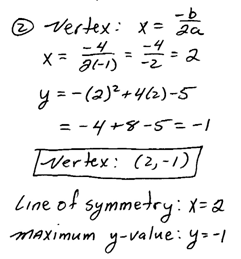 ② Vertex: x = -b/2a
x = -4/2(-1) = -4/-2 = 2
y = -(2)² + 4(2) - 5
= -4 + 8 - 5 = -1
Vertex: (2, -1)
Line of symmetry: x = 2
maximum y-value: y = -1